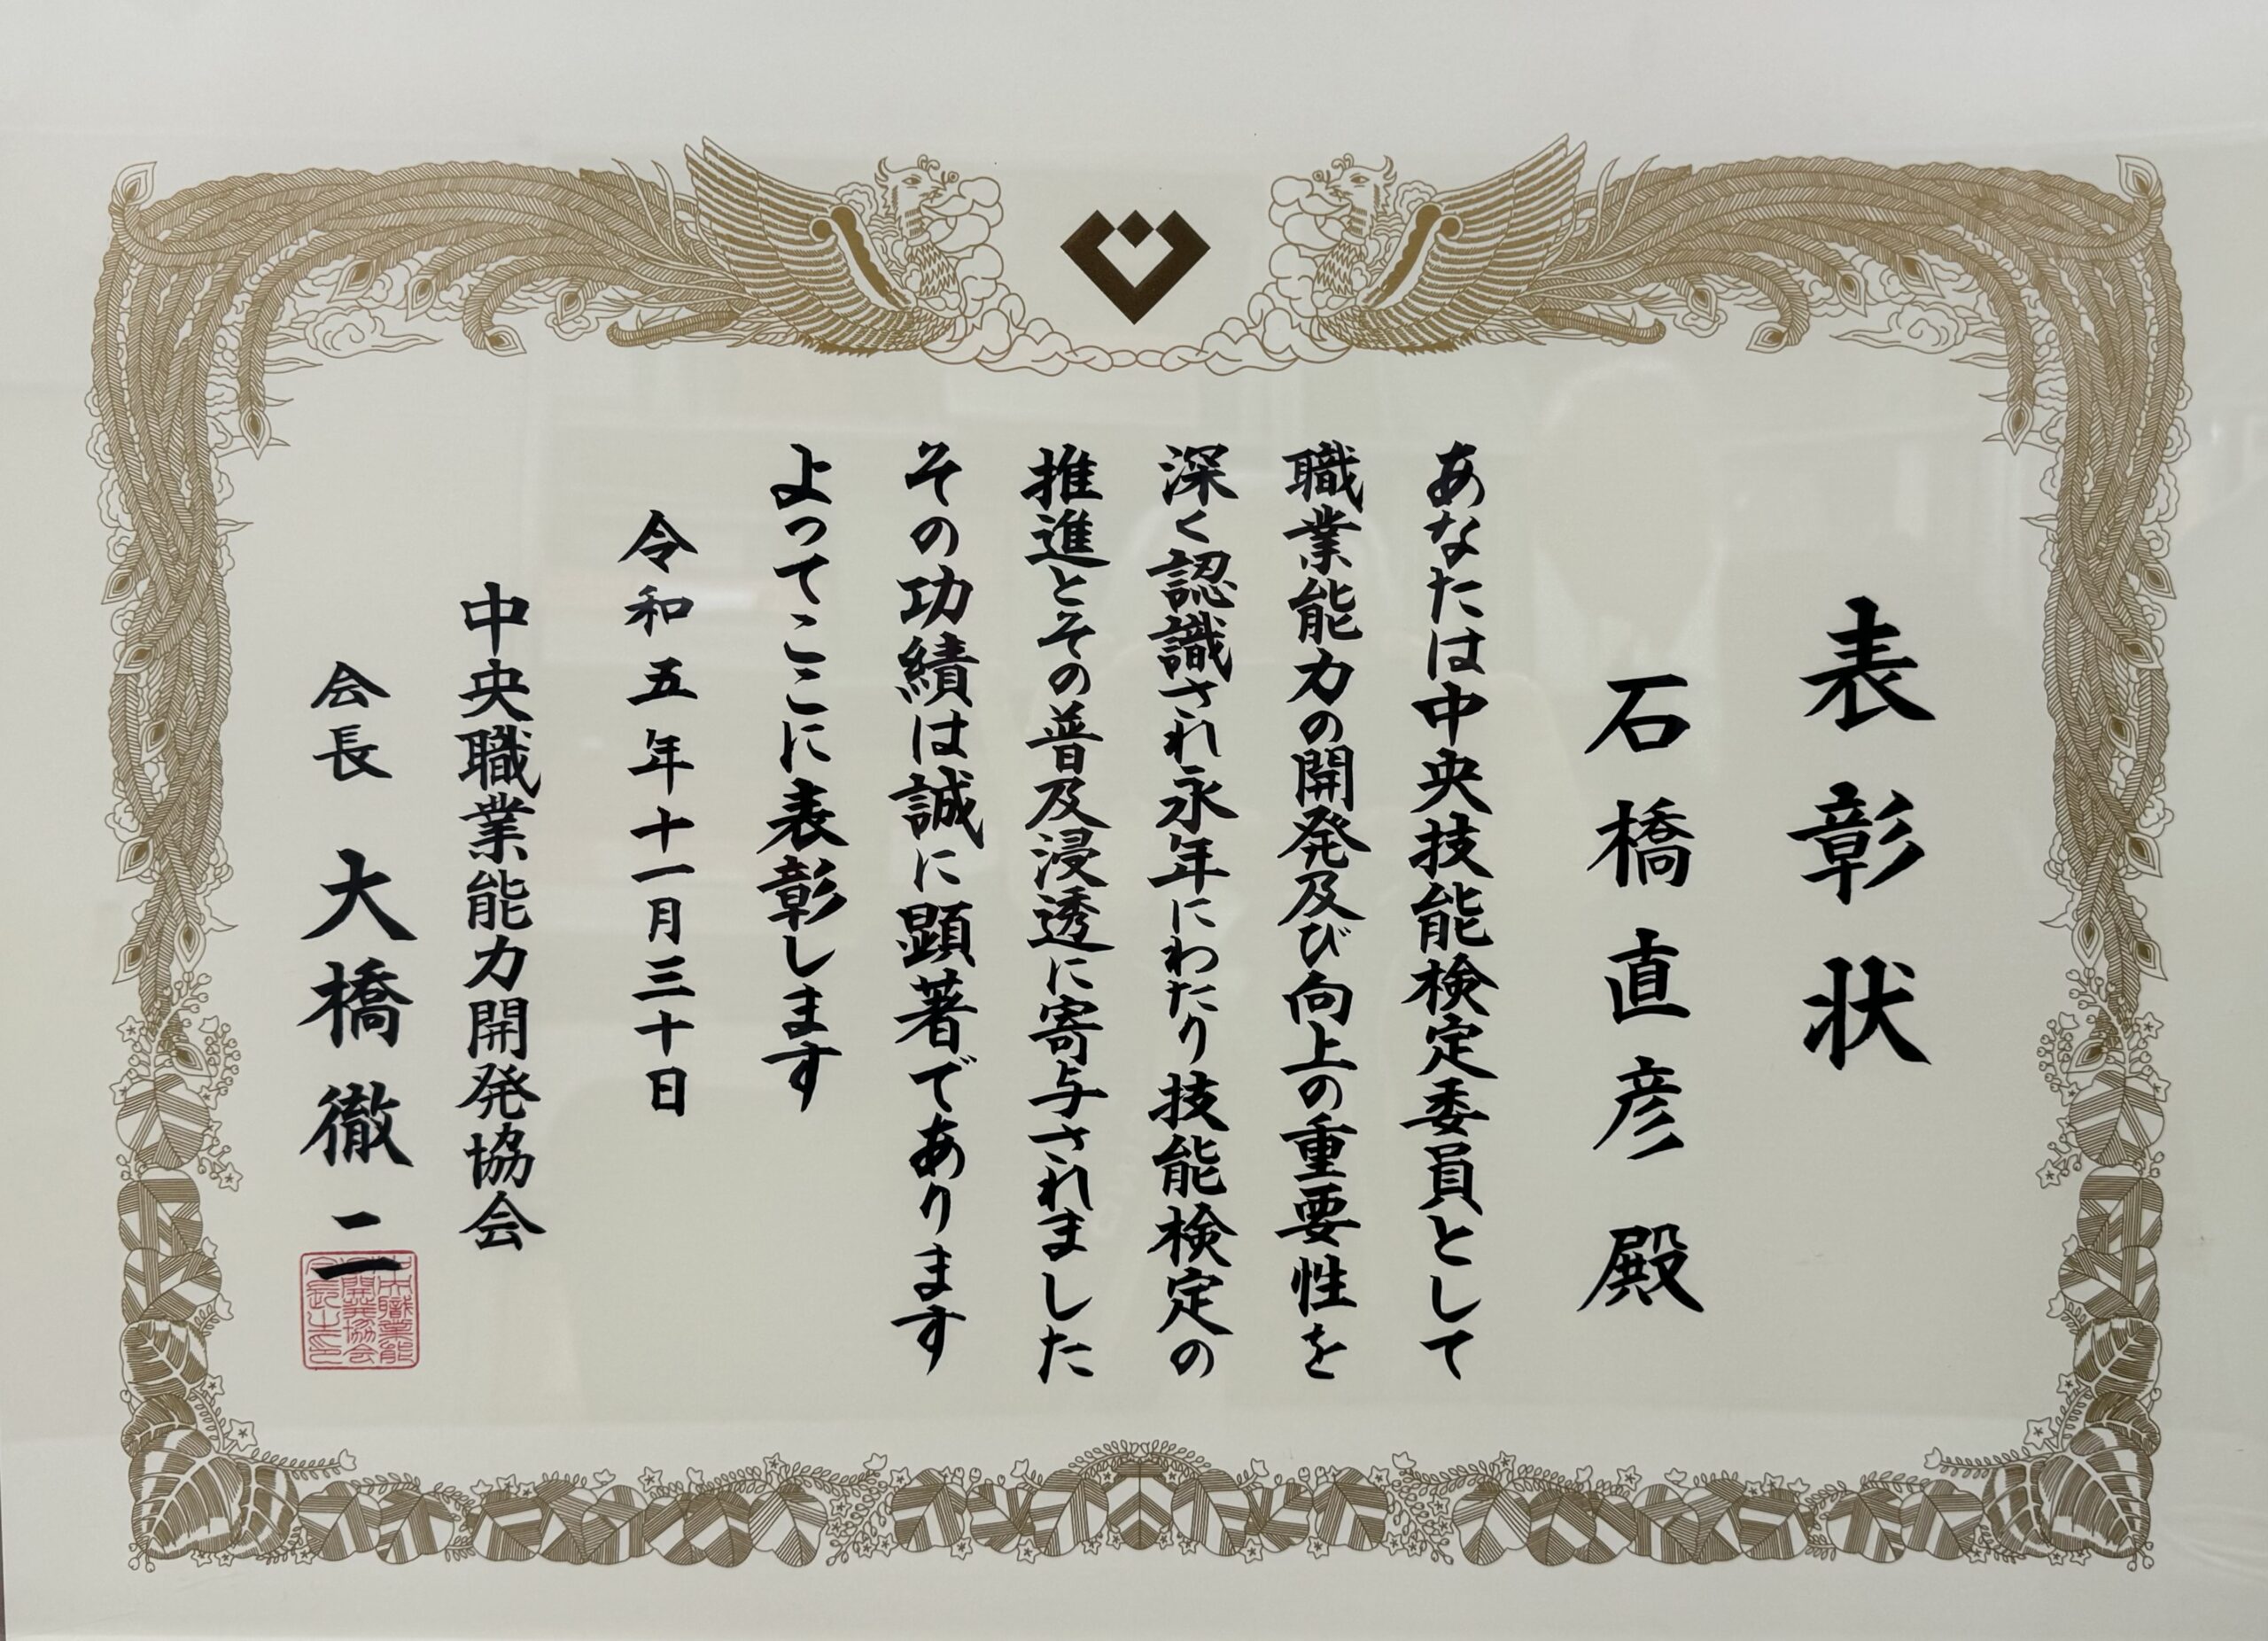 表彰状
石橋直彦殿
あなたは中央技能検定委員として
職業能力の開発及び向上の重要性を
深く認識され永年にわたり技能検定の
推進とその普及浸透に寄与されました
その功績は誠に顕著であります
よってここに表彰します
令和五年十一月三十日
中央職業能力開発協会
会長 大橋徹二
中央職業能力開発協会会長之印